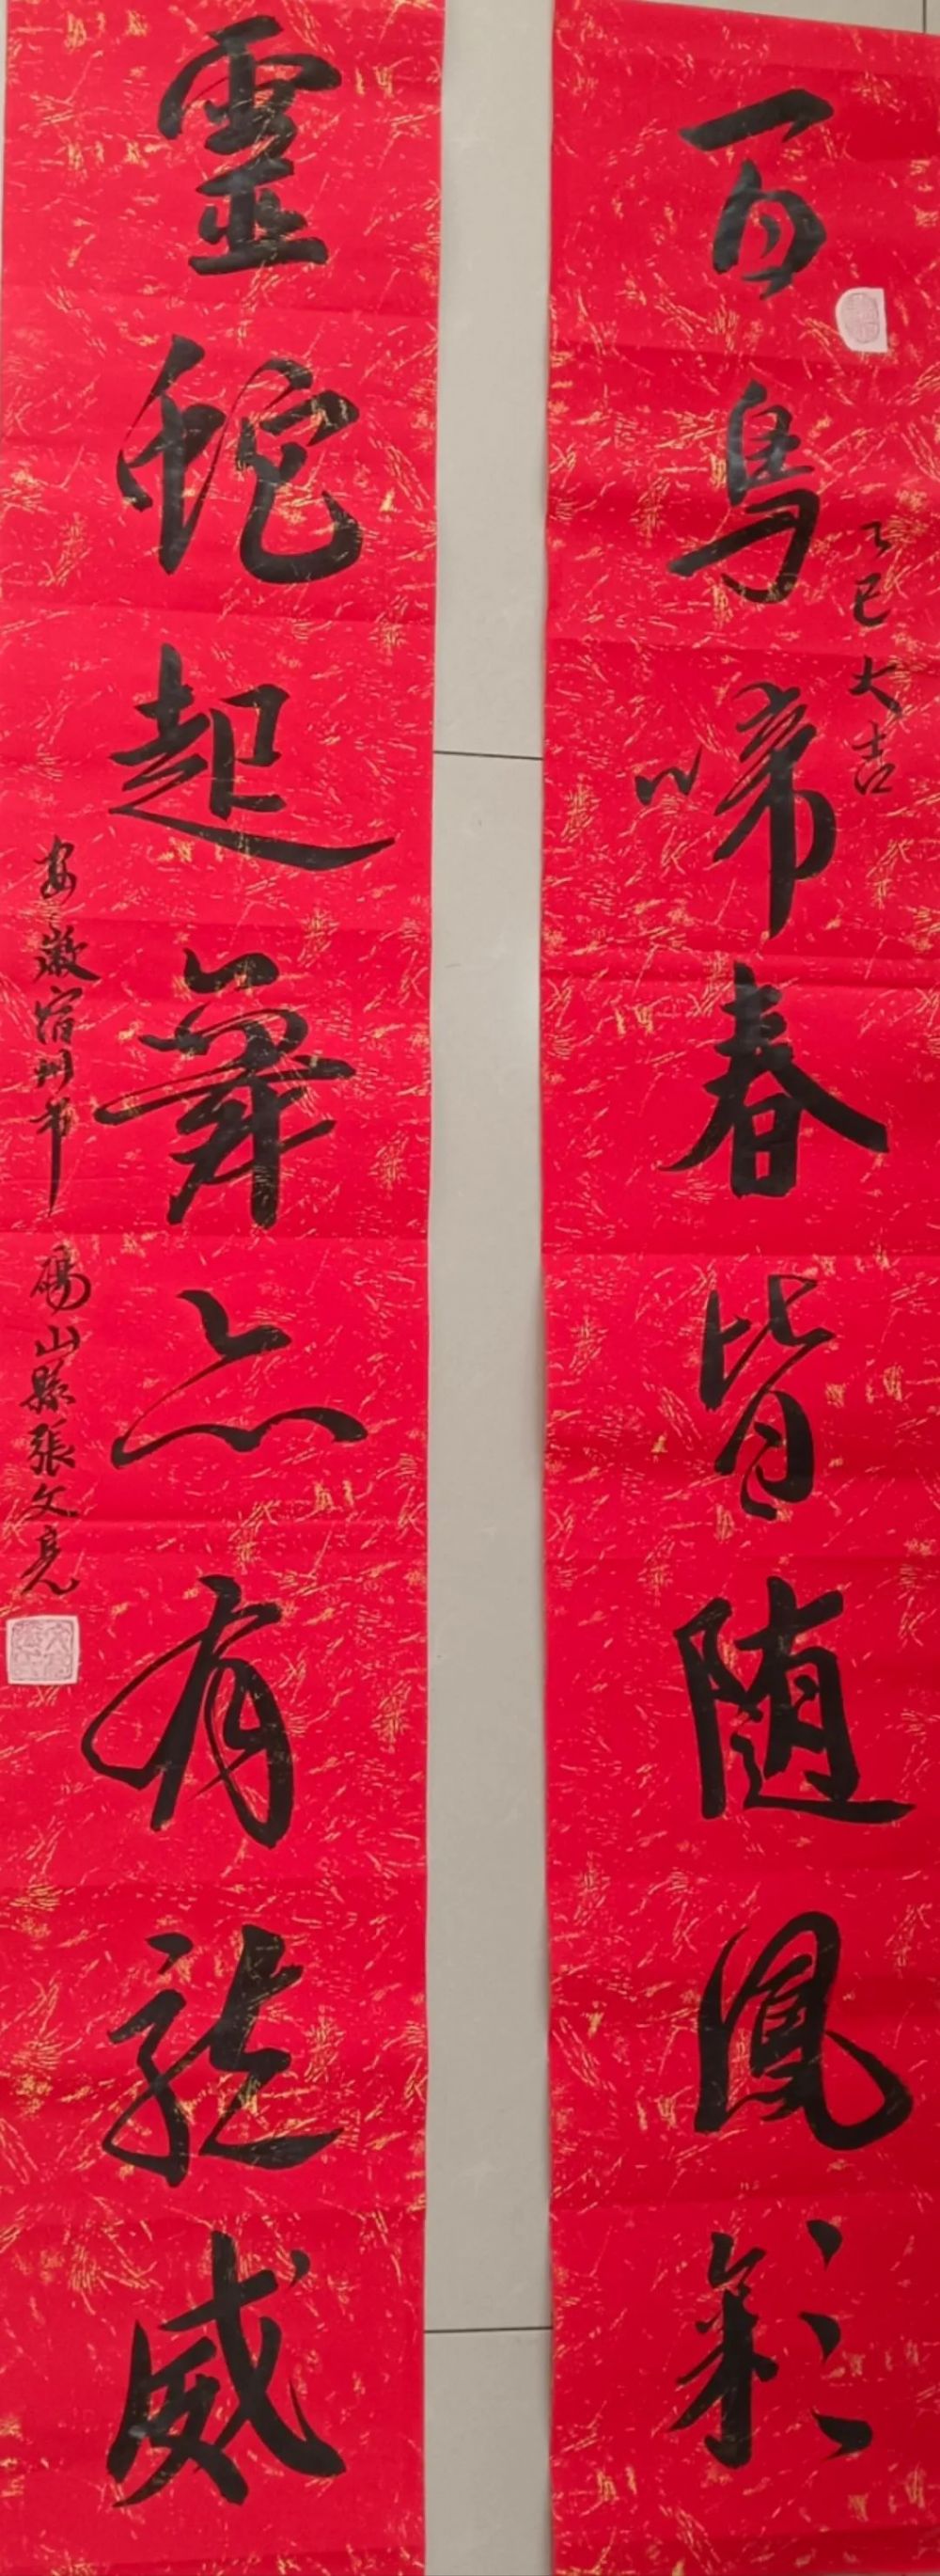 百鳥啼春皆随鳳彩
乙巳大吉
靈蛇起舞亦有龍威
安徽宿州市碭山縣張文亮